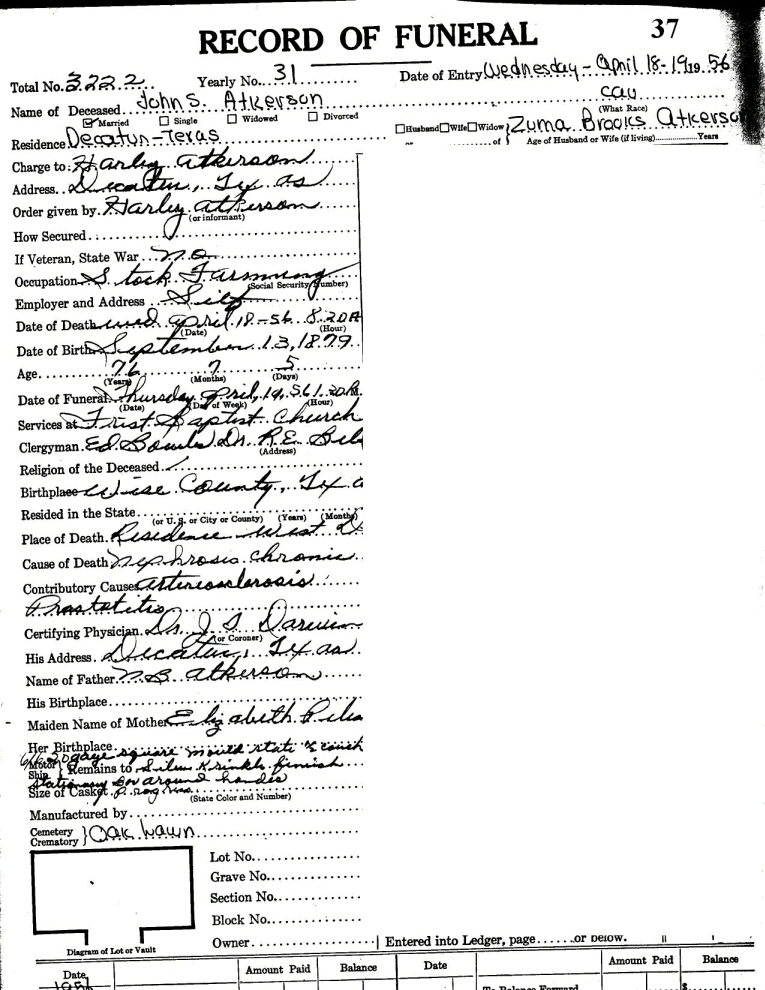 RECORD OF FUNERAL 37
Total No. 3222 Yearly No. 31 Date of Entry Wednesday - April 18-19 19 56
Name of Deceased John S. Atkerson cau
(What Race)
Married Single Widowed Divorced
Residence Decatur - Texas Husband Wife Widow or of Zuma Brooks Atkerson
Age of Husband or Wife (if living) Years
Charge to: Harley Atkerson
Address. Decatur, Texas
Order given by. Harley Atkerson
(or informant)
How Secured
If Veteran, State War no
Occupation Stock Farmning
(Social Security Number)
Employer and Address Self
Date of Death wed April 18-56 8:20A
(Date) (Hour)
Date of Birth September 13, 1879
Age 76 7 5
(Years) (Months) (Days)
Date of Funeral Thursday April, 19, 56 1:20P.
(Date) (Day of Week) (Hour)
Services at Frist Baptist Church
Clergyman. Ed Dr. R.E.
(Address)
Religion of the Deceased
Birthplace Wise County, Texa
Resided in the State
(or U. S. or City or County) (Years) (Months)
Place of Death. Residence West
Cause of Death nephrosis chronic
Contributory Causes arteriosclerosis
Prostatitis
Certifying Physician. Dr. J. S.
(or Coroner)
His Address. Decatur, Texas
Name of Father. Atkerson
His Birthplace
Maiden Name of Mother Elizabeth
Her Birthplace
20 gage square mould state couch
Motor Ship } Remains to Silver Krinkle finish
stationary bar around handes
Size of Casket
(State Color and Number)
Manufactured by
Cemetery Crematory } Oak Lawn
Lot No.
Grave No.
Section No.
Block No.
Owner Entered into Ledger, page or below.
Diagram of Lot or Vault
Date Amount Paid Balance Date Amount Paid Balance
1956 To Balance Forward $